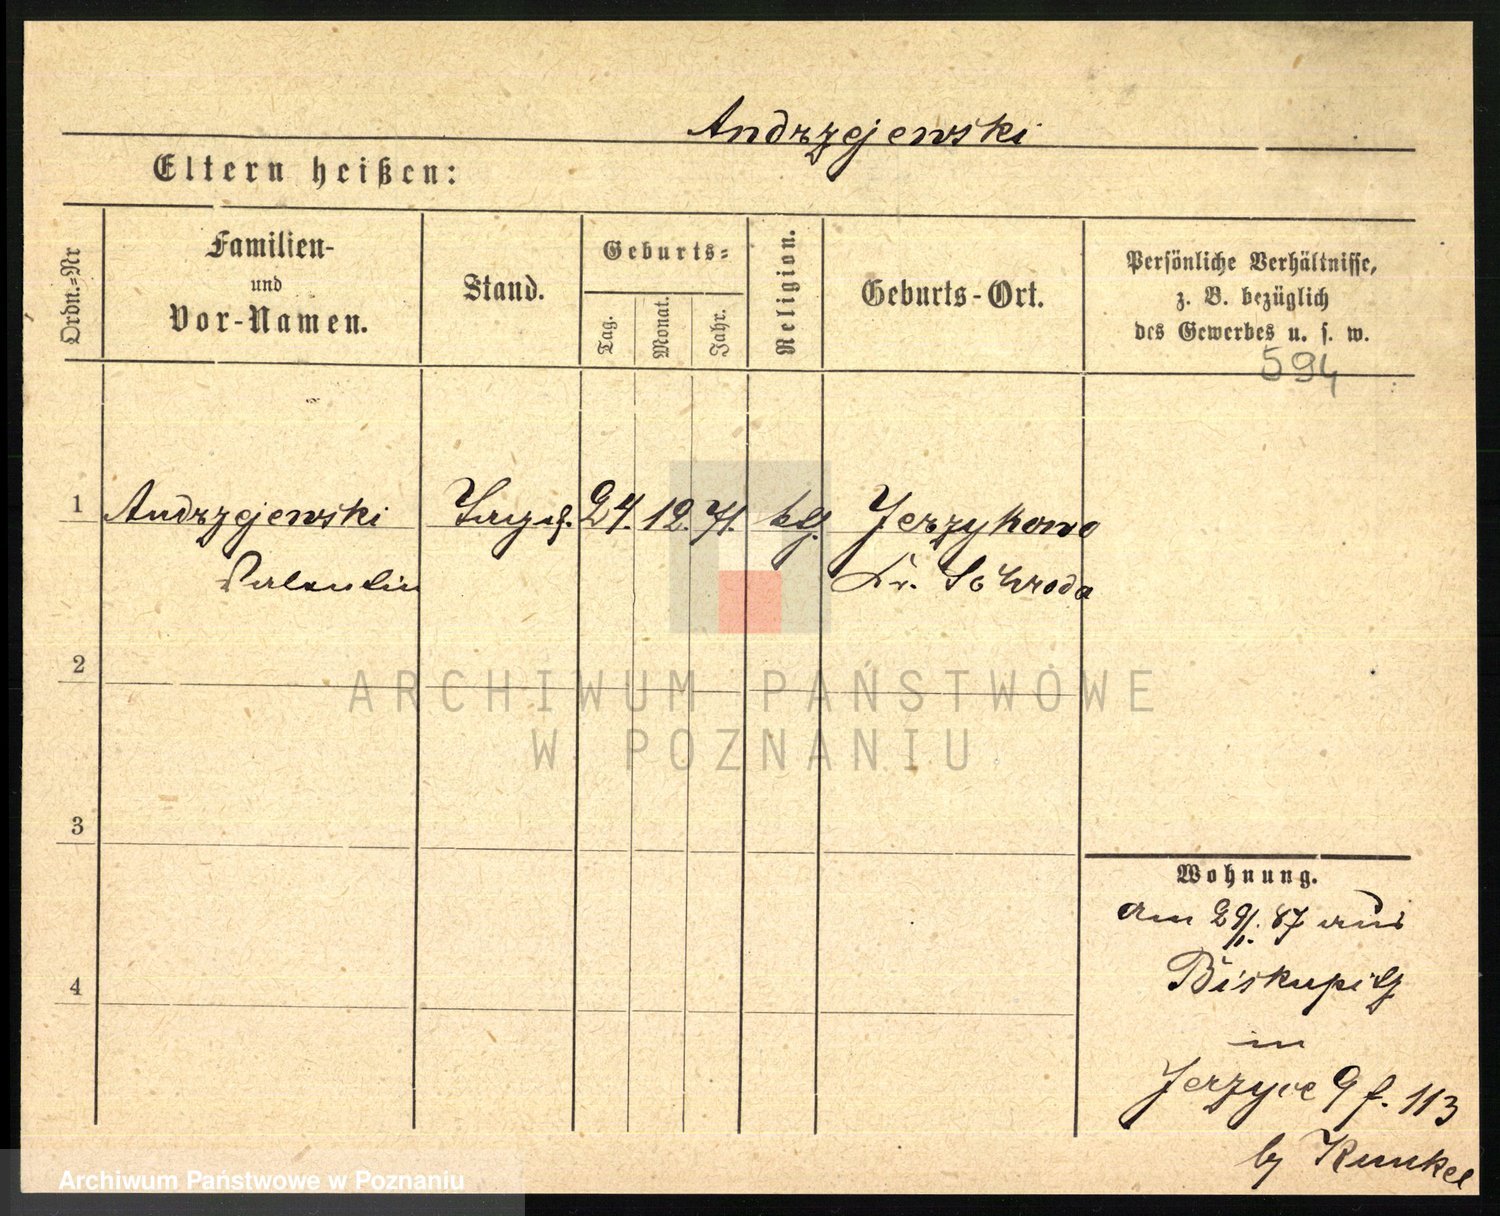 Andrzejewski
Eltern heißen:
Ordn.-Nr
Familien-
und
Vor-Namen.
Stand.
Geburts-
Tag.
Monat.
Jahr.
Religion.
Geburts-Ort.
Persönliche Verhältnisse,
z. B. bezüglich
des Gewerbes u. s. w.
594
1 Andrzejewski 24. 12. 71. Jerzykowo
Valentin Kr. Schroda
2
ARCHIWUM PAŃSTWOWE
W POZNANIU
3
4
Wohnung.
am 29/. 87 aus
Biskupitz
in
Jerzyce 9 f. 113
by Kunkel
Archiwum Państwowe w Poznaniu